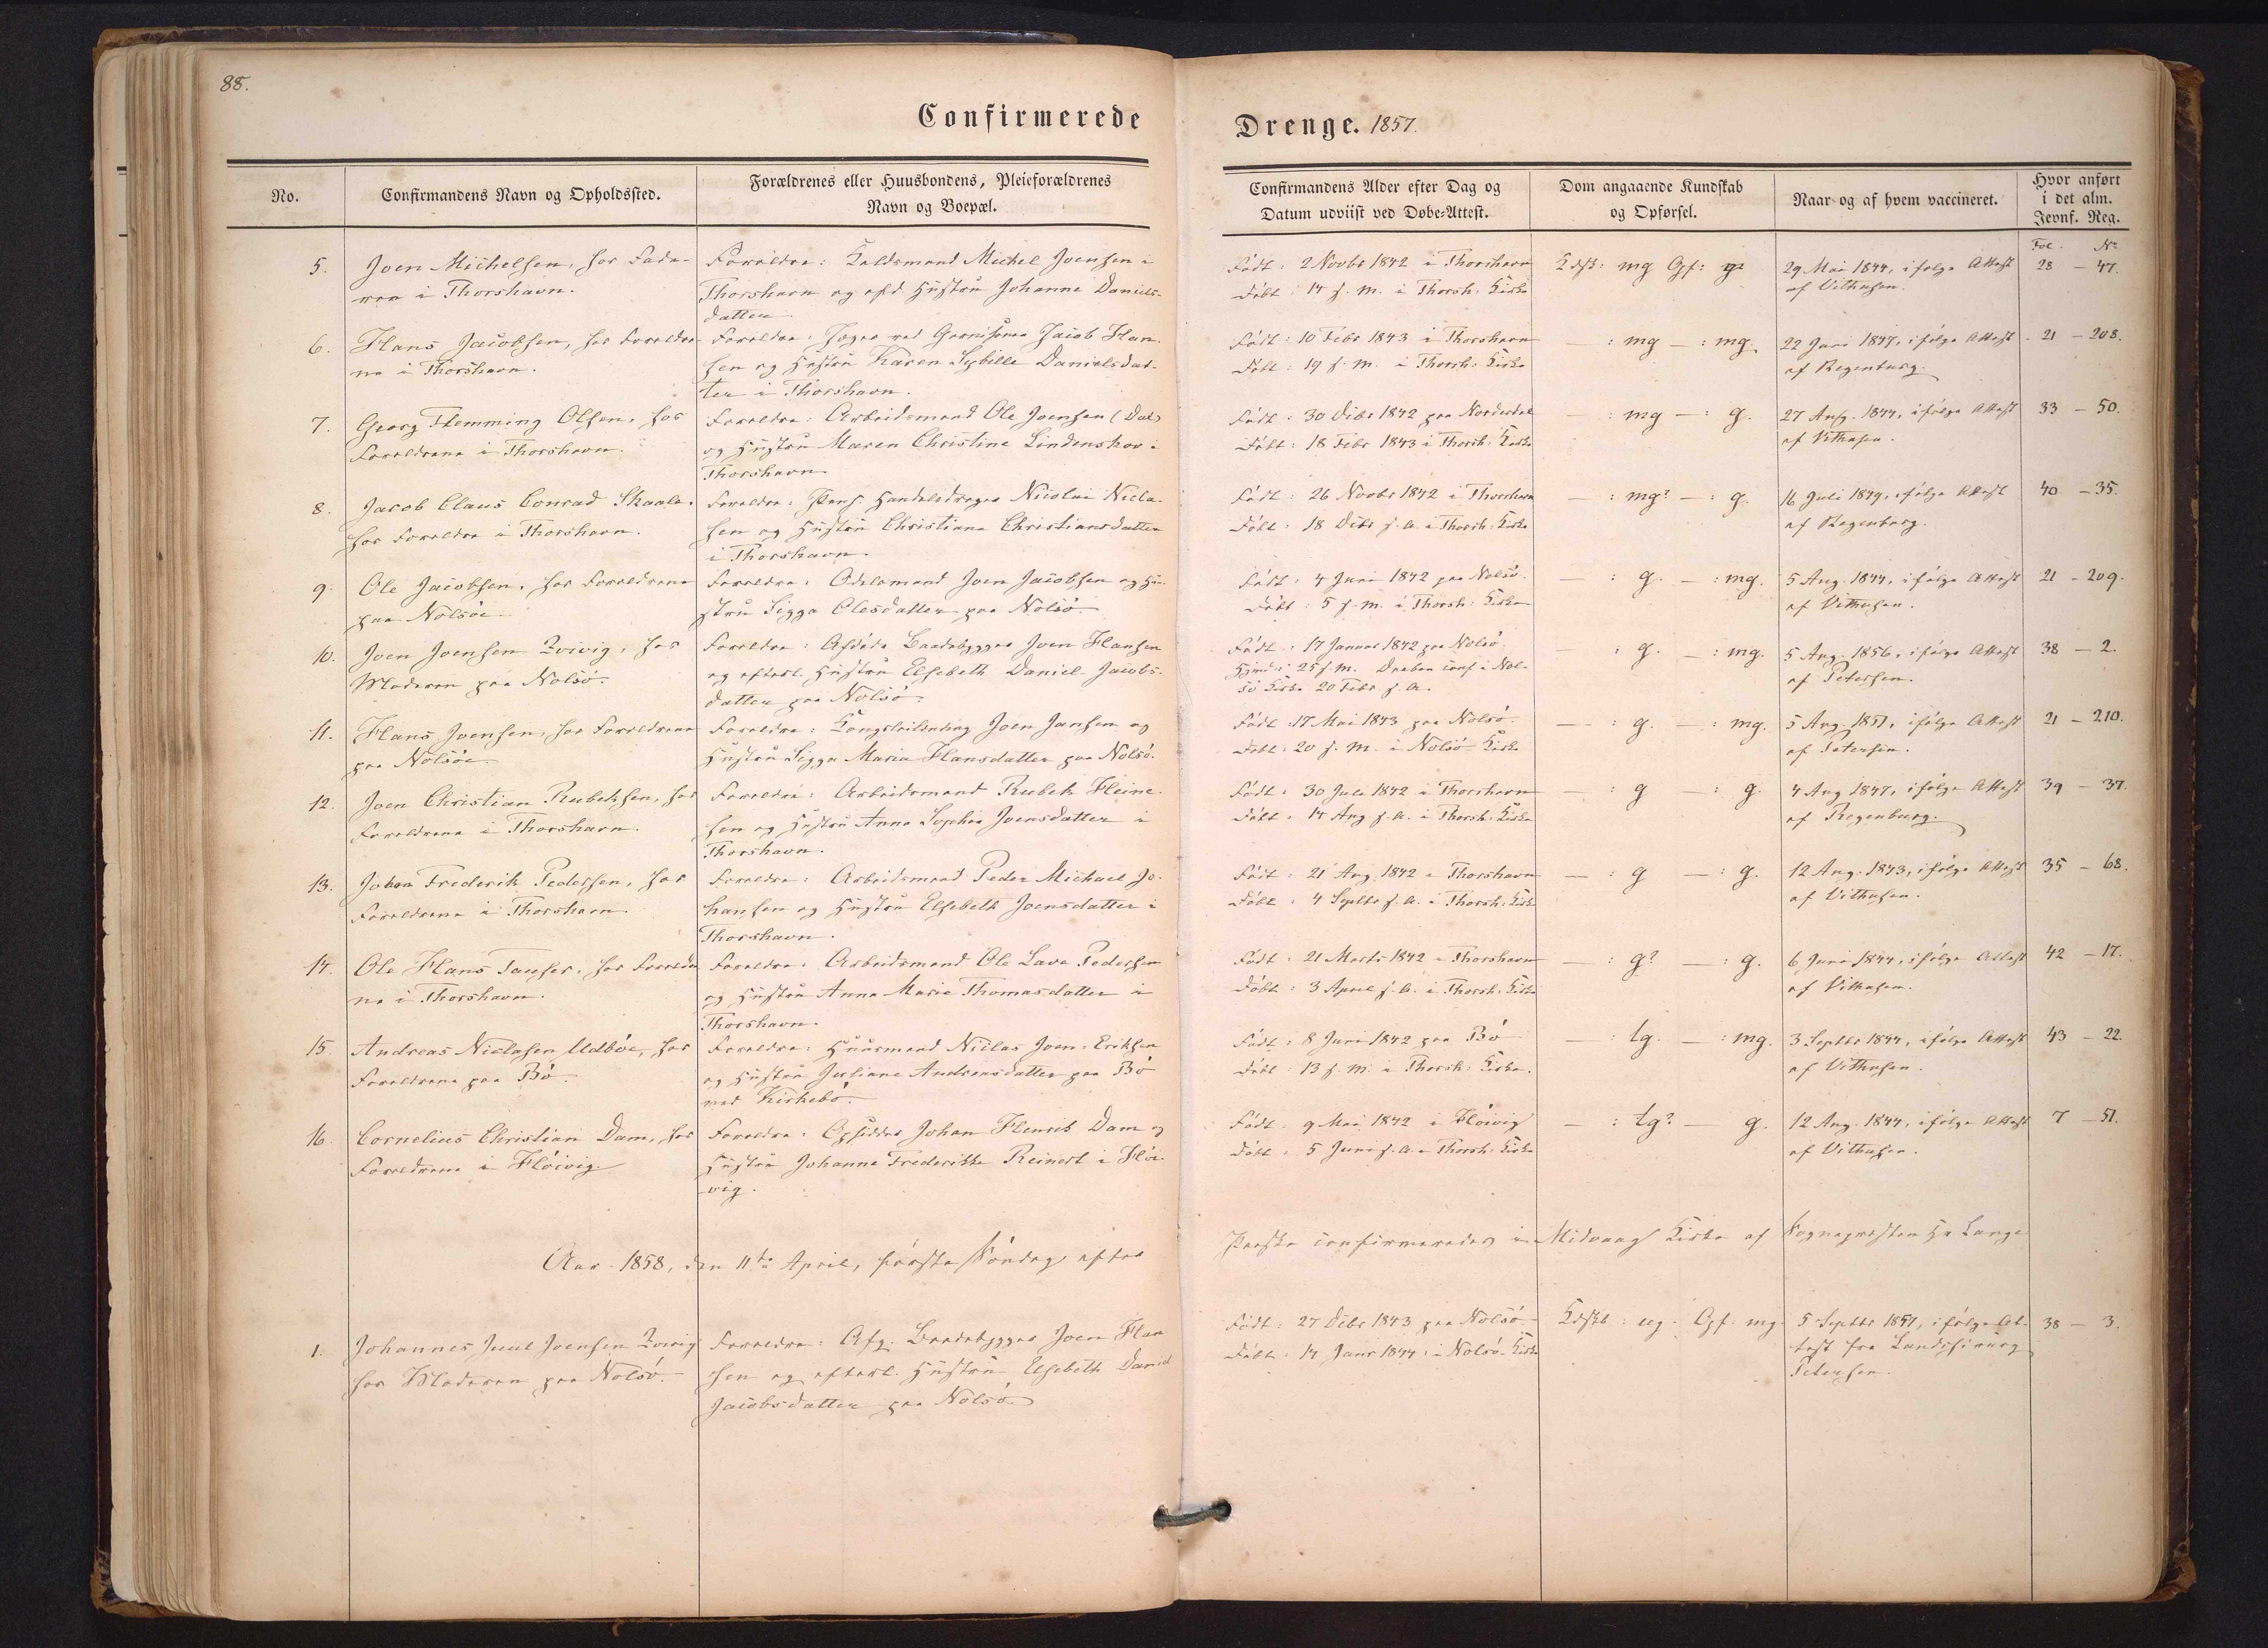 88.
Confirmerede
Drenge. 1857.
No.
Confirmandens Navn og Opholdssted.
Forældrenes eller Huusbondens, Pleieforældrenes
Navn og Boepæl.
Confirmandens Alder efter Dag og
Datum udviist ved Døbe-Attest.
Dom angaaende Kundskab
og Opførsel.
Naar og af hvem vaccineret.
Hvor anført
i det alm.
Jevnf. Reg.
Fol. No
5. Joen Michelsen, hos Fade-
ren i Thorshavn.
Forældre: Michel Joensen i
Thorshavn og Hustru Johanne Daniels-
datter.
Født: 2 Novbr 1842 i Thorshavn
Døbt: 14 s. M. i Thorsh: Kirke
Kdsk: mg Opf: g
29 Mai 1844, ifølge Attest
af Vithusen.
28 - 47.
6. Hans Jacobsen, hos Forældre-
ne i Thorshavn.
Forældre: Jæger ved Garnisonen Jacob Han-
sen og Hustru Karen Sybille Danielsdat-
ter i Thorshavn.
Født: 10 Febr 1843 i Thorshavn
Døbt: 19 s. M. i Thorsh: Kirke
— : mg — : mg.
22 Juni 1847, ifølge Attest
af Regenburg.
21 - 208.
7. Georg Flemming Olsen, hos
Forældrene i Thorshavn.
Forældre: Arbeidsmand Ole Joensen (Dal)
og Hustru Maren Christine Lindenskov i
Thorshavn.
Født: 30 Decbr 1842 paa Norderdal
Døbt: 18 Febr 1843 i Thorsh: Kirke
— : mg — : g.
27 Aug. 1844, ifølge Attest
af Vithusen.
33 - 50.
8. Jacob Claus Conrad Skaale.
hos Forældre i Thorshavn.
Forældre: Pens. Handelsdreger Nicolai Nicla-
sen og Hustru Christiane Christiansdatter
i Thorshavn.
Født: 26 Novbr 1842 i Thorshavn
Døbt: 18 Decbr s. A. i Thorsh: Kirke
— : mg? — : g.
16 Juli 1849, ifølge Attest
af Regenburg.
40 - 35.
9. Ole Jacobsen, hos Forældrene
paa Nolsöe.
Forældre: Odelsmand Joen Jacobsen og Hu-
stru Sigga Olesdatter paa Nolsö.
Født: 4 Juni 1842 paa Nolsö.
Døbt: 5 s. M. i Thorsh: Kirke
— : g. — : mg.
5 Aug. 1844, ifølge Attest
af Vithusen.
21 - 209.
10. Joen Joensen Zvivig, hos
Moderen paa Nolsö.
Forældre: Afdøde Baadebygger Joen Hansen
og efterl. Hustru Elsebeth Daniel-Jacobs-
datter paa Nolsö.
Født: 17 Januar 1842 paa Nolsö.
Hjmd: 25 s. M. Daaben conf. i Nol-
sö Kirke 20 Febr s. A.
— : g. — : mg.
5 Aug. 1856, ifølge Attest
af Petersen.
38 - 2.
11. Hans Joensen, hos Forældrene
paa Nolsöe.
Forældre: Joen Jansen og
Hustru Sigga Maria Hansdatter paa Nolsö.
Født: 17 Mai 1843 paa Nolsö.
Døbt: 20 s. M. i Nolsö Kirke
— : g. — : mg.
5 Aug. 1857, ifølge Attest
af Petersen.
21 - 210.
12. Joen Christian Rubeksen, hos
Forældrene i Thorshavn.
Forældre: Arbeidsmand Rubek Heine-
sen og Hustru Anna Sophia Joensdatter i
Thorshavn.
Født: 30 Juli 1842 i Thorshavn
Døbt: 14 Aug s. A. i Thorsh: Kirke
— : g — : g.
4 Aug 1847, ifølge Attest
af Regenburg.
39 - 37.
13. Johan Frederik Pedersen, hos
Forældrene i Thorshavn.
Forældre: Arbeidsmand Peder Michael Jo-
hansen og Hustru Elsebeth Joensdatter i
Thorshavn.
Født: 21 Aug 1842 i Thorshavn
Døbt: 4 Septbr s. A. i Thorsh: Kirke
— : g — : g.
12 Aug. 1843, ifølge Attest
af Vithusen.
35 - 68.
14. Ole Hans Tausen, hos Forældre
ne i Thorshavn.
Forældre: Arbeidsmand Ole Lave Pedersen
og Hustru Anna Marie Thomasdatter i
Thorshavn.
Født: 21 Marts 1842 i Thorshavn
Døbt: 3 April s. A. i Thorsh: Kirke
— : g? — : g.
6 Juni 1844, ifølge Attest
af Vithusen.
42 - 17.
15. Andreas Niclasen Udböe, hos
Forældrene paa Bö.
Forældre: Huusmand Niclas Joen-Eriksen
og Hustru Juliane Andreasdatter paa Bö
ved Kirkebö.
Født: 8 Juni 1842 paa Bö
Døbt: 13 s. M. i Thorsh: Kirke.
— : tg. — : mg.
3 Septbr 1844, ifølge Attest
af Vithusen.
43 - 22.
16. Cornelius Christian Dam, hos
Forældrene i Höivig.
Forældre: Opsidder Johan Henrik Dam og
Hustru Johanne Frederikke Reinert i Höi-
vig.
Født: 9 Mai 1842 i Höivig
Døbt: 5 Juni s. A. i Thorsh: Kirke
— : tg? — g.
12 Aug. 1844, ifølge Attest
af Vithusen.
7 - 51.
Aar 1858, den 11te April, første Søndag efter
Paaske confirmeredes i Midvaag Kirke af Sognepræsten Hr Lange
1. Johannes Juul Joensen Zvivig
hos Moderen paa Nolsö.
Forældre: Afg. Baadebygger Joen Han-
sen og efterl. Hustru Elsebeth Daniel
Jacobsdatter paa Nolsö.
Født: 27 Decbr 1843 paa Nolsö
Døbt: 14 Janr 1844 i Nolsö Kirke
Kdskb: ug. Opf: mg.
5 Septbr 1857, ifølge At-
test fra Landchirurg
Petersen.
38 - 3.